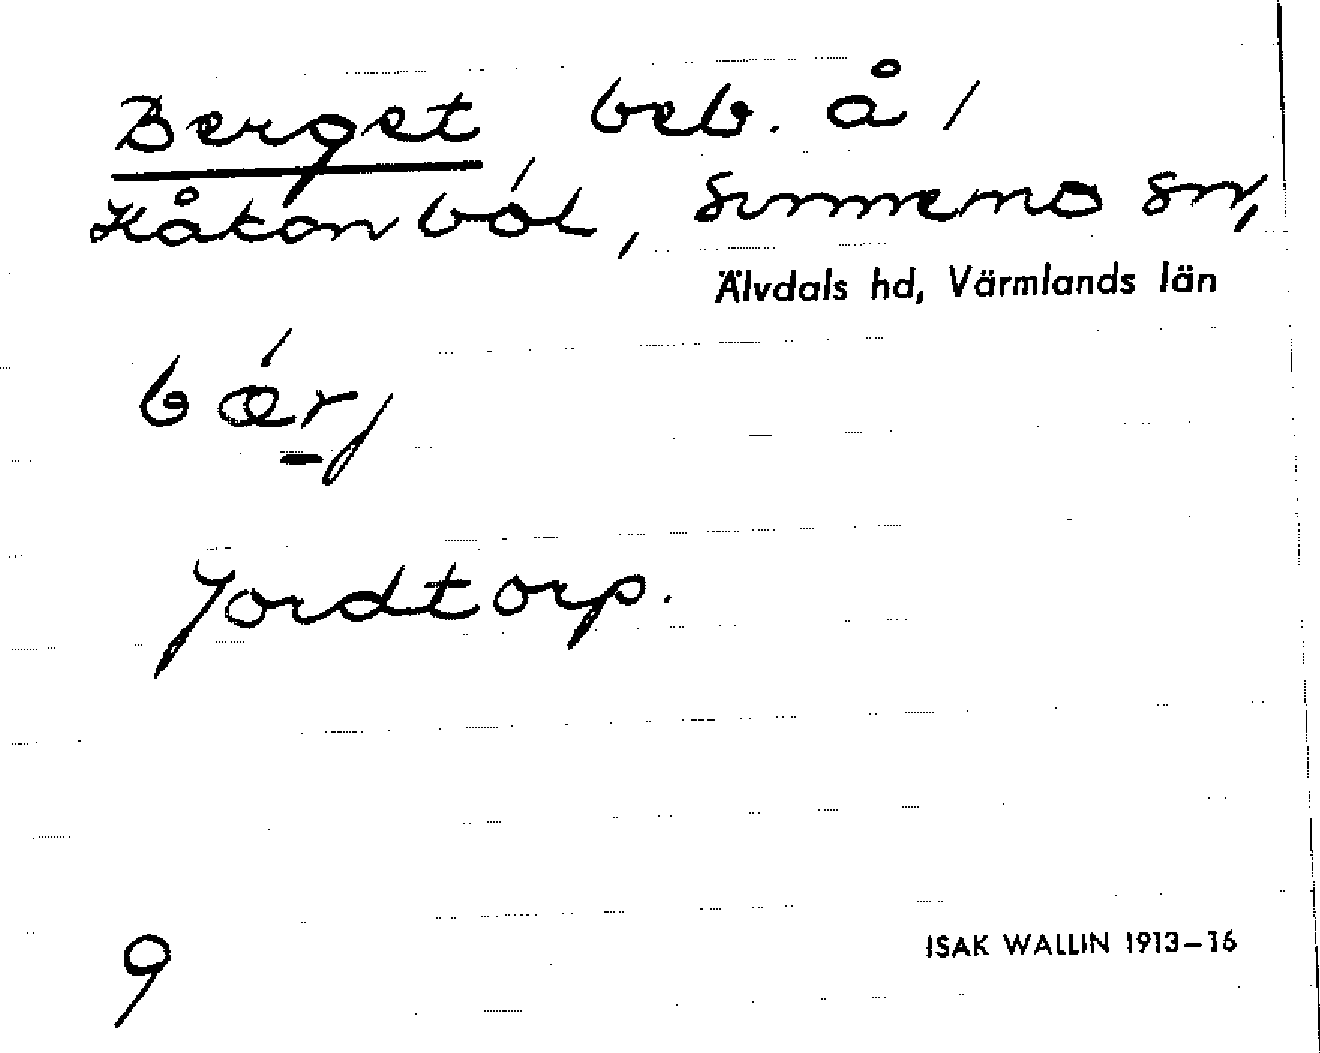 Berget beb. å /
Håkanból, Sunnemo sn,
Älvdals hd, Värmlands län
bǽr̠j
Jordtorp.
9
ISAK WALLIN 1913–16